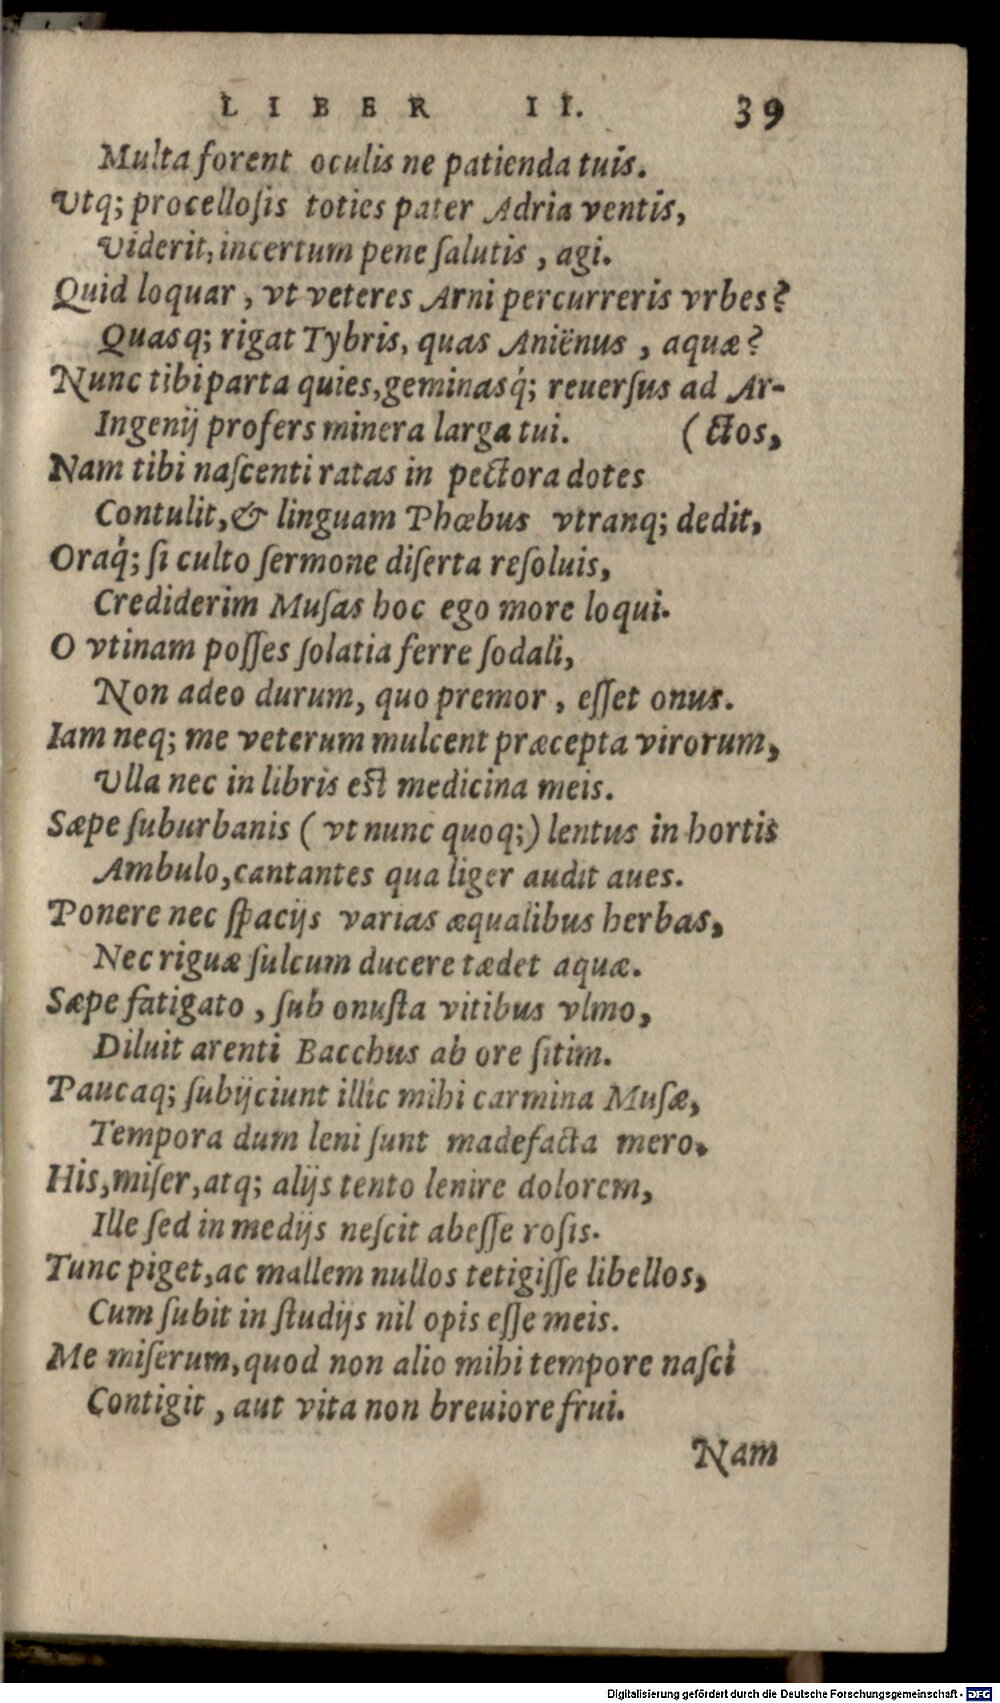 LIBER II. 39
Multa forent oculis ne patienda tuis.
Vtq; procelloſis toties pater Adria ventis,
Viderit, incertum pene ſalutis, agi.
Quid loquar, vt veteres Arni percurreris vrbes?
Quasq; rigat Tybris, quas Aniënus, aquæ?
Nunc tibi parta quies, geminasq́; reuerſus ad Ar-
Ingenij profers minera larga tui. (ctos,
Nam tibi naſcenti ratas in pectora dotes
Contulit, & linguam Phœbus vtranq; dedit,
Oraq́; ſi culto ſermone diſerta reſoluis,
Crediderim Muſas hoc ego more loqui.
O vtinam poſſes ſolatia ferre ſodali,
Non adeo durum, quo premor, eſſet onus.
Iam neq; me veterum mulcent præcepta virorum,
Vlla nec in libris est medicina meis.
Sæpe ſuburbanis (vt nunc quoq;) lentus in hortis
Ambulo, cantantes qua liger audit aues.
Ponere nec ſpacijs varias æqualibus herbas,
Nec riguæ ſulcum ducere tædet aquæ.
Sæpe fatigato, ſub onuſta vitibus vlmo,
Diluit arenti Bacchus ab ore ſitim.
Paucaq; ſubijciunt illic mihi carmina Muſæ,
Tempora dum leni ſunt madefacta mero.
His, miſer, atq; alijs tento lenire dolorem,
Ille ſed in medijs neſcit abeſſe roſis.
Tunc piget, ac mallem nullos tetigiſſe libellos,
Cum ſubit in ſtudijs nil opis eſſe meis.
Me miſerum, quod non alio mihi tempore naſci
Contigit, aut vita non breuiore frui.
Nam
Digitalisierung gefördert durch die Deutsche Forschungsgemeinschaft - DFG